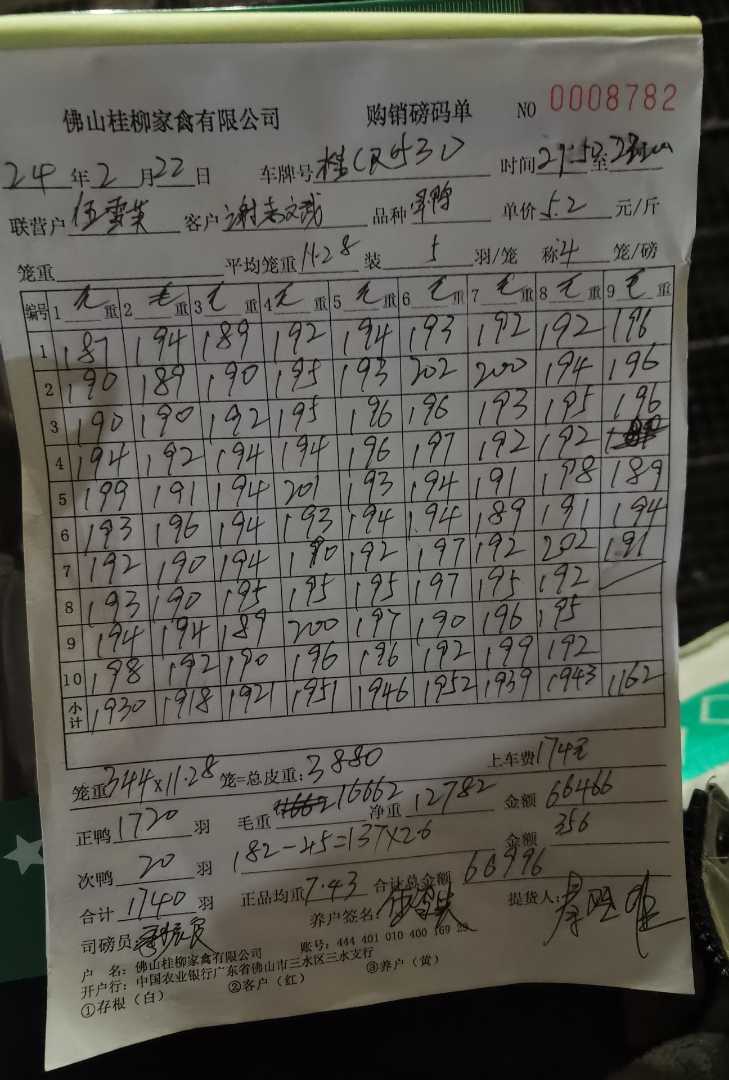 佛山桂柳家禽有限公司 购销磅码单 NO 0008782
24 年 2 月 22 日 车牌号 桂 时间 至
联营户 伍雪英 客户 谢志文 品种 单价 5.2 元/斤
笼重 平均笼重 11.28 装 5 羽/笼 称 4 笼/磅
编号 1 毛 重 2 毛 重 3 毛 重 4 毛 重 5 毛 重 6 毛 重 7 毛 重 8 毛 重 9 毛 重
1 187 194 189 192 194 193 192 192 196
2 190 189 190 195 193 202 200 194 196
3 190 190 192 195 196 196 193 195 196
4 194 192 194 194 196 197 192 192
5 199 191 194 201 193 194 191 198 189
6 193 196 194 193 194 194 189 191 194
7 192 190 194 190 192 197 192 202 191
8 193 190 195 195 195 197 195 192
9 194 194 189 200 197 190 196 195
10 198 192 190 196 196 192 199 192
小计 1930 1918 1921 1951 1946 1952 1939 1943 1162
笼重 344×11.28 笼=总皮重: 3880 上车费 174元
正鸭 1720 羽 毛重 16662 净重 12782 金额 66466
次鸭 20 羽 182-45=137×2.6 金额 356
合计 1740 羽 正品均重 7.43 合计总金额 66996
司磅员 养户签名: 提货人:
户 名: 佛山桂柳家禽有限公司 账号: 444 401 010 400 169 23
开户行: 中国农业银行广东省佛山市三水区三水支行
①存根(白) ②客户(红) ③养户(黄)